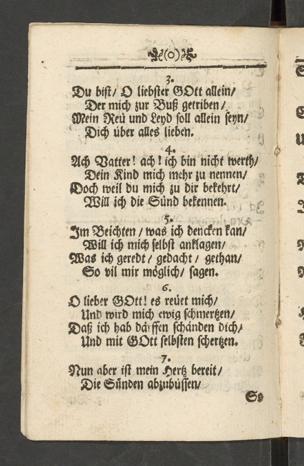 (0)
3.
Du bist/ O liebster GOtt allein/
Der mich zur Buß getriben/
Mein Reü und Leyd soll allein seyn/
Dich über alles lieben.
4.
Ach Vatter! ach! ich bin nicht werth/
Dein Kind mich mehr zu nennen/
Doch weil du mich zu dir bekehrt/
Will ich die Sünd bekennen.
5.
Im Beichten/ was ich dencken kan/
Will ich mich selbst anklagen/
Was ich geredt/ gedacht/ gethan/
So vil mir möglich/ sagen.
6.
O lieber GOtt! es reüet mich/
Und wird mich ewig schmertzen/
Daß ich hab därffen schänden dich/
Und mit GOtt selbsten schertzen.
7.
Nun aber ist mein Hertz bereit/
Die Sünden abzubüssen/